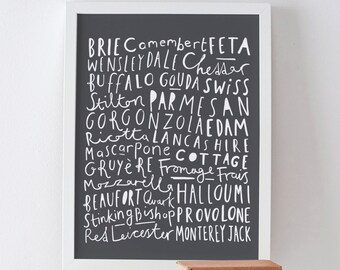 BRIE Camembert FETA
WENSLEYDALE Chedder
BUFFALO GOUDA SWISS
Stilton PARMESAN
GORGONZOLA EDAM
Ricotta LANCASHIRE
Mascarpone COTTAGE
GRUYÈRE Fromage Frais
Mozzarella HALLOUMI
BEAUFORT Quark
Stinking Bishop PROVOLONE
Red Leicester MONTEREY JACK